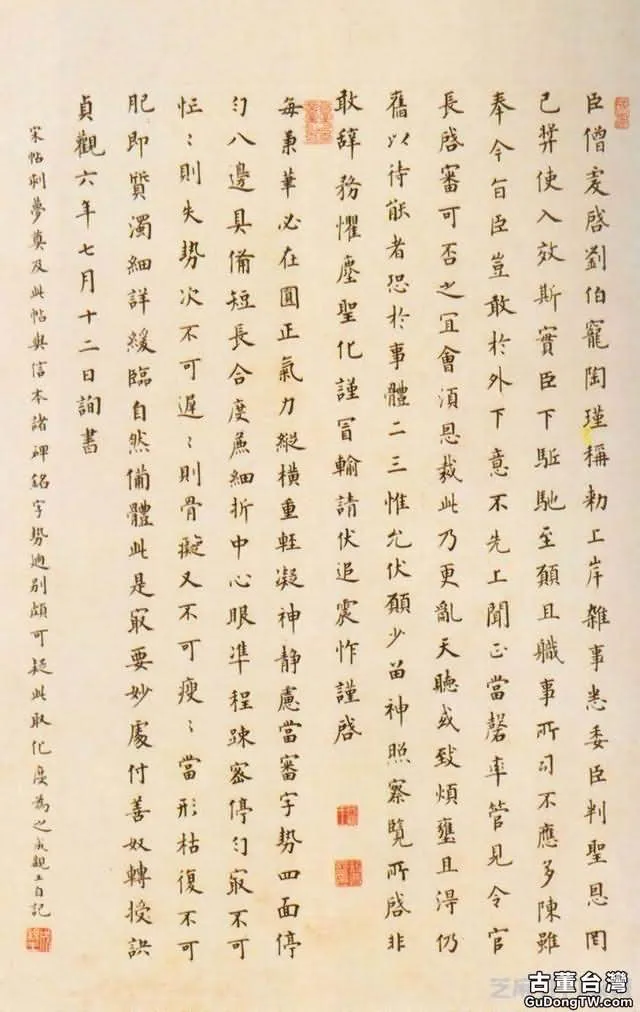 臣僧䖍啓劉伯寵陶瑾稱勑上岸雜事悉委臣判聖恩罔
已弉使入效斯實臣下駈馳至願且職事所司不應多陳雖
奉今旨臣豈敢於外下意不先上聞正當罄率管見令官
長啓審可否之冝會須恩裁此乃更亂天聽或致煩壅且淂仍
舊以待能者恐於事體二三惟允伏願少留神照察覽所啓非
敢辞務懼塵聖化謹冐輸請伏追震怍謹啓
每秉筆必在圓正氣力縱橫重輕凝神静慮當審字勢四面停
勻八邊具備短長合度麁細折中心眼準程踈密停勻㝡不可
忙〻則失勢次不可遲〻則骨癡又不可瘦〻當形枯復不可
肥即質濁細詳緩臨自然備體此是㝡要妙處付善奴轉授訣
貞觀六年七月十二日詢書
宋帖刻夢奠及此帖與信本諸碑銘字勢迥别頗可疑此取化度為之成親王自記
古董台灣
GuDongTW.com